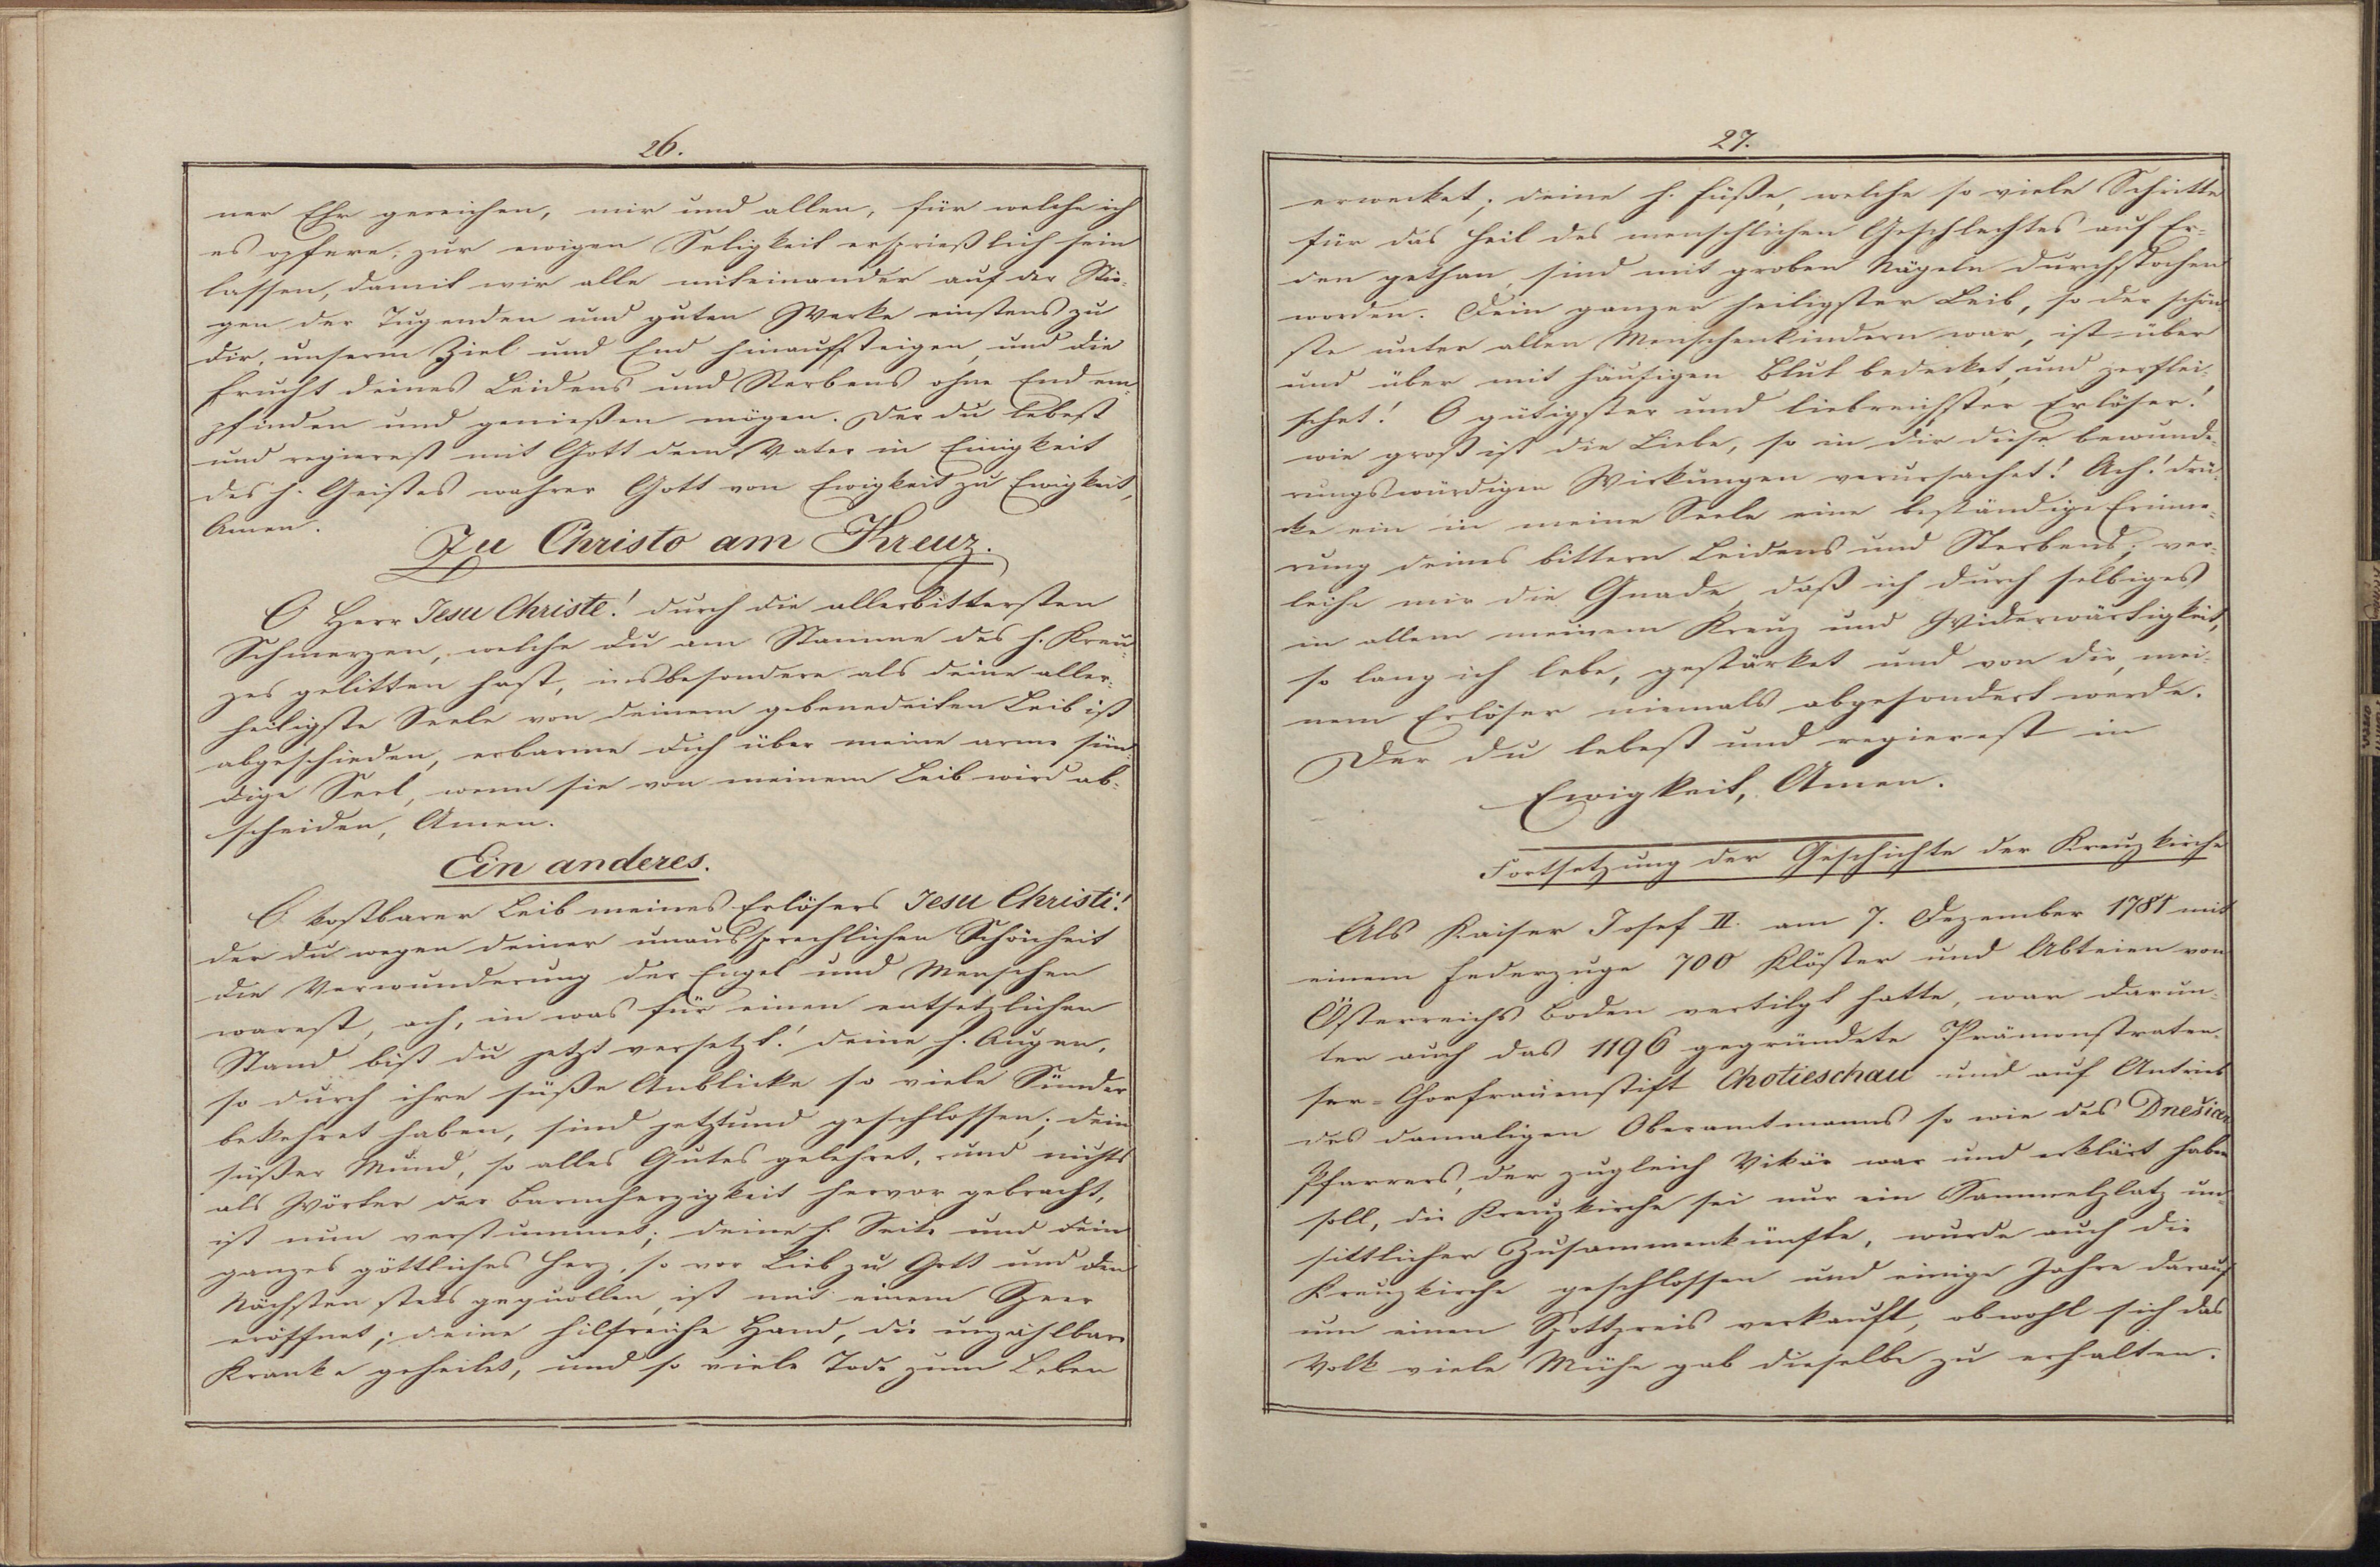 26.
ner Ehr gereichen, mir und allen, für welche ich
es opfere, zur ewigen Seligkeit ersprießlich sein
lassen, damit wir alle miteinander auf der Stie-
gen der Tugenden und guten Werke einstens zu
dir, unserm Ziel und End hinaufsteigen, und die
Frucht deines Leidens und Sterbens ohne End em-
pfinden und genießen mögen. Der du lebest
und regierest mit Gott dem Vater in Einigkeit
des h. Geistes wahrer Gott von Ewigkeit zu Ewigkeit,
Amen.
Zu Christo am Kreuz.
O Herr Jesu Christe! durch die allerbittersten
Schmerzen, welche du am Stamme des h. Kreu-
zes gelitten hast, insbesondere als deine aller-
heiligste Seele von deinem gebenedeiten Leib ist
abgeschieden, erbarme dich über meine arme sün-
dige Seel, wenn sie von meinem Leib wird ab-
scheiden, Amen.
Ein anderes.
O kostbarer Leib meines Erlösers Jesu Christi!
der du wegen deiner unaussprechlichen Schönheit
die Verwunderung der Engel und Menschen
warest, ach, in was für einen entsetzlichen
Stand bist du jetzt versetzt! deine h. Augen,
so durch ihre süße Anblicke so viele Sünder
bekehret haben, sind jetztund geschlossen; dein
süßer Mund, so alles Gutes gelehret, und nichts
als Wörter der Barmherzigkeit hervor gebracht,
ist nun verstummet; deine h. Seite und dein
ganzes göttliches Herz, so vor Lieb zu Gott und den
Nächsten stets gequollen, ist mit einem Speer
eröffnet; deine hilfreiche Hand, die unzählbare
Kranke geheilet, und so viele Tode zum Leben
27.
erwecket; deine h. Füße, welche so viele Schritte
für das Heil des menschlichen Geschlechtes auf Er-
den gethan, sind mit groben Nägeln durchstochen
worden. Dein ganzer heiligster Leib, so der schön-
ste unter allen Menschenkindern war, ist über
und über mit häufigen Blut bedecket, und zerflei-
schet! O gütigster und liebreichster Erlöser!
wie groß ist die Liebe, so in dir diese bewunde-
rungswürdigen Wirkungen verursachet! Ach! drü-
cke ein in meine Seele eine beständige Erinne-
rung deines bittern Leidens und Sterbens; ver-
leihe mir die Gnade, daß ich durch selbiges
in allem meinem Kreuz und Widerwärtigkeit,
so lang ich lebe, gestärket und von dir, mei-
nem Erlöser niemals abgesondert werde.
Der du lebest und regierest in
Ewigkeit, Amen.
Fortsetzung der Geschichte der Kreuzkirche
Als Kaiser Josef II. am 7. Dezember 1781 mit
einem Federzuge 700 Klöster und Abteien von
Österreichs Boden vertilgt hatte, war darun-
ter auch das 1196 gegründete Prämonstraten-
ser-Chorfrauenstift Chotieschau und auf Antrieb
des damaligen Oberamtmanns so wie des Dnešicer
Pfarrers, der zugleich Vikär war und erklärt haben
soll, die Kreuzkirche sei nur ein Sammelplatz un-
sittlicher Zusammenkünfte, wurde auch die
Kreuzkirche geschlossen und einige Jahre darauf
um einen Spottpreis verkauft, obwohl sich das
Volk viele Mühe gab dieselbe zu erhalten.